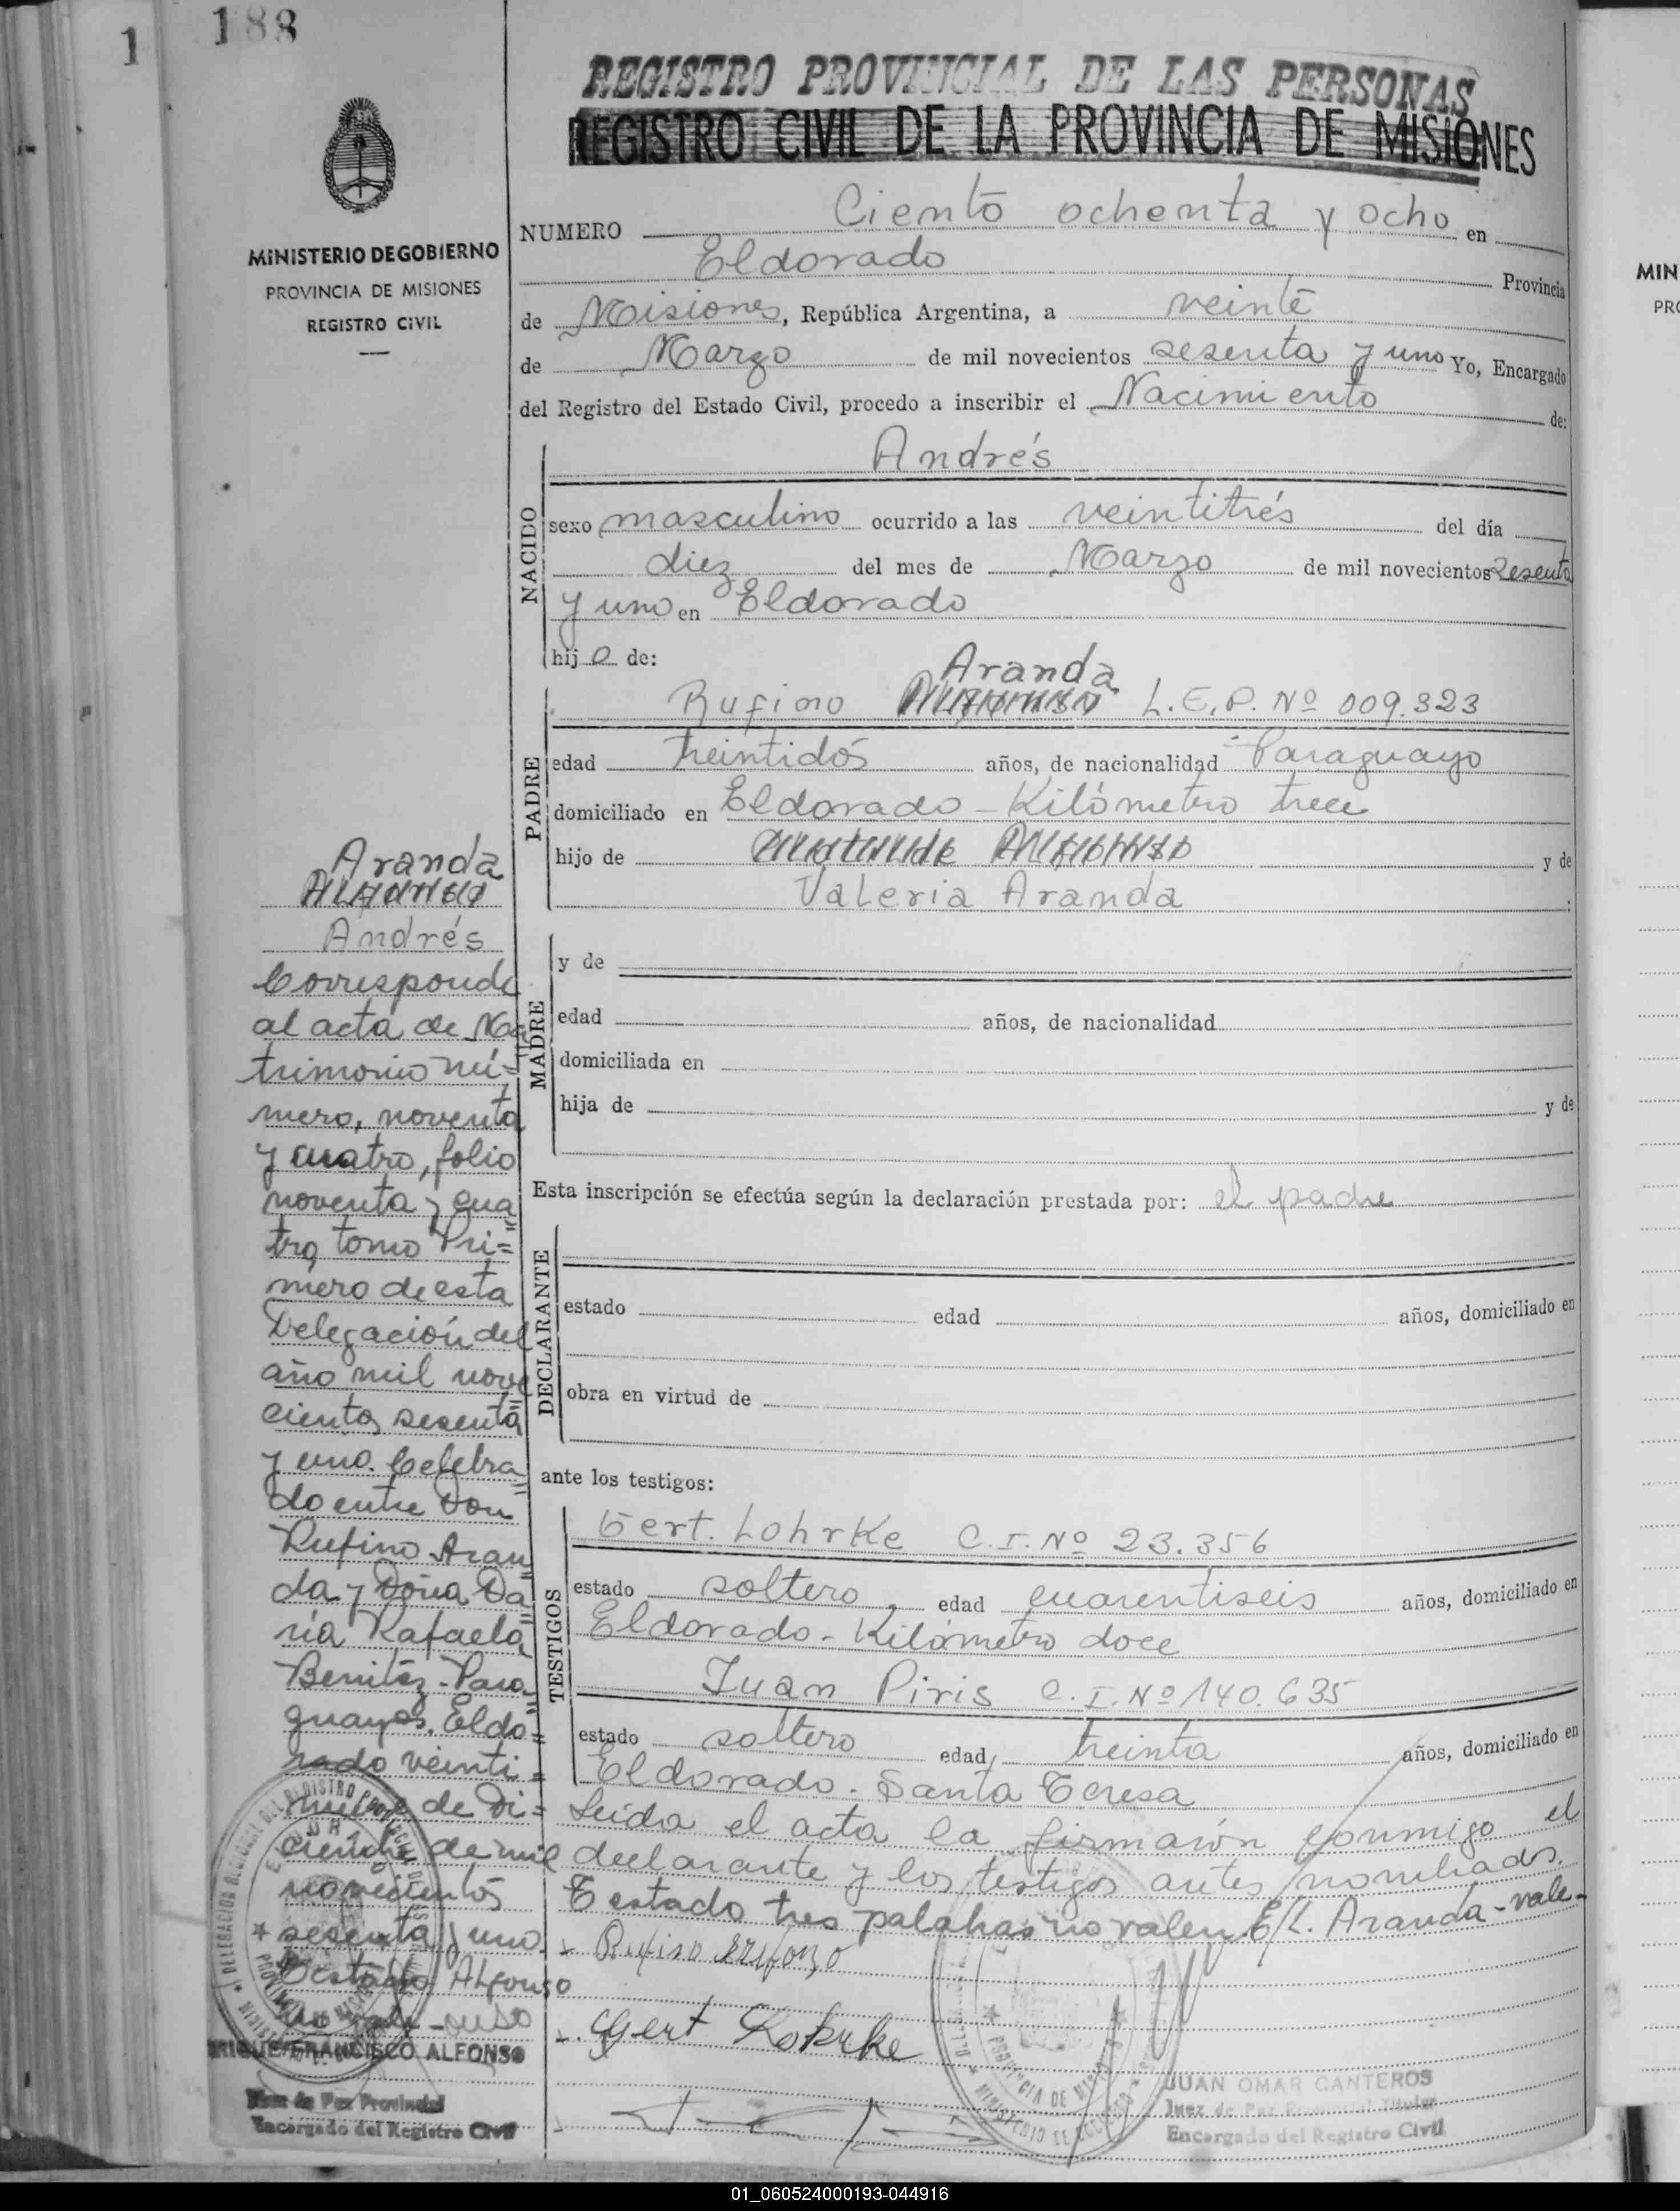 1
188
REGISTRO PROVINCIAL DE LAS PERSONAS
REGISTRO CIVIL DE LA PROVINCIA DE MISIONES
MINISTERIO DE GOBIERNO
PROVINCIA DE MISIONES
REGISTRO CIVIL
NUMERO Ciento ochenta y ocho en
Eldorado Provincia
de Misiones, República Argentina, a veinte
de Marzo de mil novecientos sesenta y uno Yo, Encargado
del Registro del Estado Civil, procedo a inscribir el Nacimiento de:
Andrés
NACIDO
sexo masculino ocurrido a las veintitrés del día
diez del mes de Marzo de mil novecientos sesenta
y uno en Eldorado
hijo de:
Aranda
Rufino L.E.P. Nº 009.323
PADRE
edad treintidós años, de nacionalidad Paraguayo
domiciliado en Eldorado - Kilómetro trece
hijo de y de
Valeria Aranda
MADRE
y de
edad años, de nacionalidad
domiciliada en
hija de y de
Esta inscripción se efectúa según la declaración prestada por: el padre
DECLARANTE
estado edad años, domiciliado en
obra en virtud de
ante los testigos:
TESTIGOS
Gert. Lohrke C.I. Nº 23.356
estado soltero, edad cuarentiseis años, domiciliado en
Eldorado - Kilómetro doce
Juan Piris C.I. Nº 140.635
estado soltero edad, treinta años, domiciliado en
Eldorado - Santa Teresa
Leída el acta la firmaron conmigo el
declarante y los testigos antes nombrados.
Testado tres palabras no valen E/L. Aranda - vale-
Rufino Alfonzo
Gert Lohrke
JUAN OMAR CANTEROS
Juez de Paz Provincial Titular
Encargado del Registro Civil
Aranda
Andrés
Corresponde
al acta de Ma
trimonio nú=
mero, noventa
y cuatro, folio
noventa y cua=
tro, tomo Pri=
mero de esta
Delegación del
año mil nove=
cientos sesenta
y uno. Celebra=
do entre Don
Rufino Aran=
da y Doña Da=
ria Rafaela
Benitez - Para=
guayos. Eldo=
rado veinti=
nueve de Di=
ciembre de mil
novecientos
sesenta y uno.
Testado Alfonso
no vale -
ENRIQUE FRANCISCO ALFONSO
Juez de Paz Provincial
Encargado del Registro Civil
MIN
PRO
01_060524000193-044916